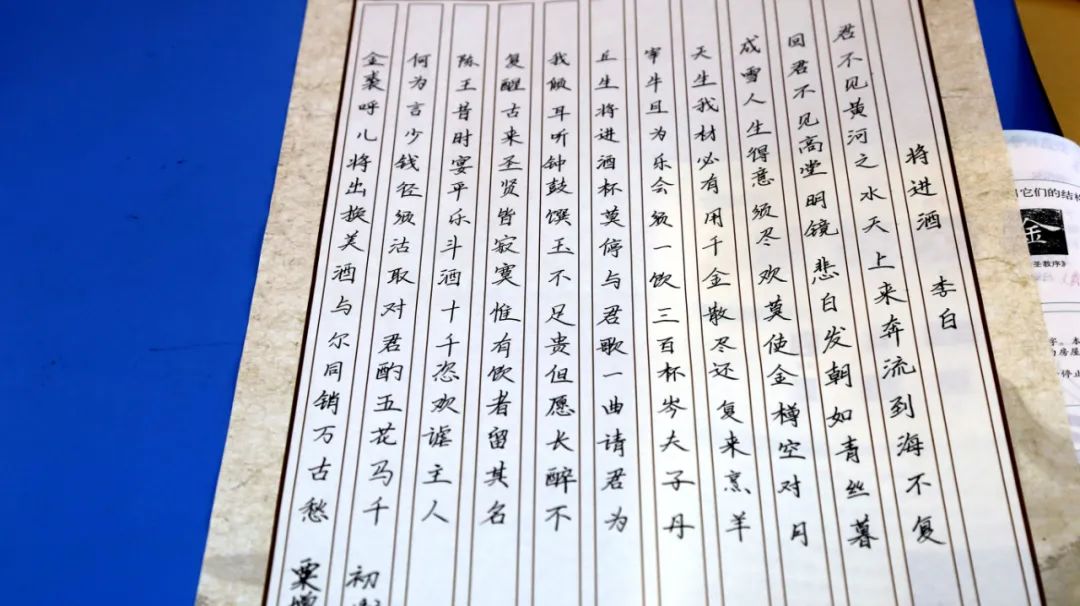 将进酒 李白
君不见黄河之水天上来奔流到海不复
回君不见高堂明镜悲白发朝如青丝暮
成雪人生得意须尽欢莫使金樽空对月
天生我材必有用千金散尽还复来烹羊
宰牛且为乐会须一饮三百杯岑夫子丹
丘生将进酒杯莫停与君歌一曲请君为
我倾耳听钟鼓馔玉不足贵但愿长醉不
复醒古来圣贤皆寂寞惟有饮者留其名
陈王昔时宴平乐斗酒十千恣欢谑主人
何为言少钱径须沽取对君酌五花马千
金裘呼儿将出换美酒与尔同销万古愁
初
粟
它们的结
金
圣教序》
本
房屋
停止